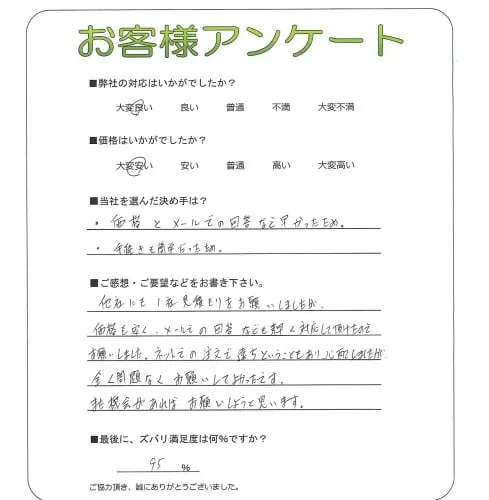 お客様アンケート
■弊社の対応はいかがでしたか？
大変良い 良い 普通 不満 大変不満
■価格はいかがでしたか？
大変安い 安い 普通 高い 大変高い
■当社を選んだ決め手は？
・価格とメールでの回答など早かったため。
・手続きも簡単だった為。
■ご感想・ご要望などをお書き下さい。
他社にも1社見積もりをお願いしましたが、
価格も安く、メールでの回答なども早く対応して頂けたので
お願いしました。ネットでの注文で ということもあり心配しましたが
全く問題なくお願いしてよかったです。
又機会があればお願いしようと思います。
■最後に、ズバリ満足度は何%ですか？
95 %
ご協力頂き、誠にありがとうございました。